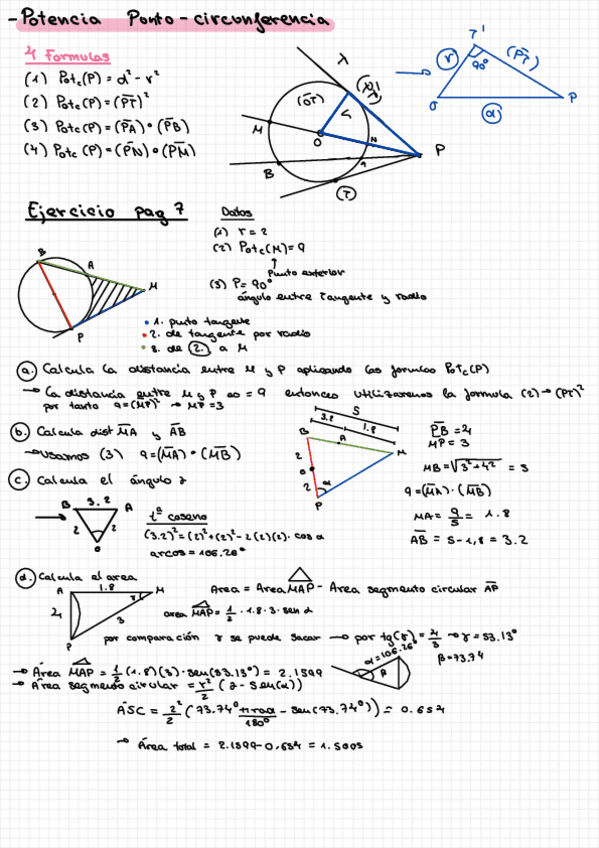 -Potencia Punto-circunferencia
4 Formulas
(1) Potc(P) = d² - r²
(2) Potc(P) = (PT)²
(3) Potc(P) = (PA) • (PB)
(4) Potc(P) = (PN) • (PM)
T'
r
(PT)
90°
O
P
(d)
(OT)
r
M
O
N
P
B
(T)
Ejercicio pag 7
Datos
(1) r = 2
(2) Potc(M) = 9
Punto exterior
(3) P = 90°
ángulo entre tangente y radio
B
A
M
P
• 1. punto tangente
• 2. de tangente por radio
• 3. de 2. a M
a. Calcula la distancia entre M y P aplicando las formulas Potc(P)
→ La distancia entre M y P es = 9 entonces utilizaremos la formula (2) → (PT)²
por tanto 9 = (MP)² → MP = 3
b. Calcula dist MA y AB
→ usamos (3) 9 = (MA) • (MB)
5
3.2
1.8
B
A
M
2
O
2
α
P
PB = 4
MP = 3
MB = √3² + 4² = 5
9 = (MA) · (MB)
MA = 9/5 = 1.8
AB = 5 - 1,8 = 3.2
c. Calcula el ángulo α
B 3.2 A
2 2
O
tª coseno
(3.2)² = (2)² + (2)² - 2(2)(2) · cos α
arcos = 106.26°
d. Calcula el area
A 1.8 M
γ
3
P
Area = Area MAP - Area segmento circular AP
area MAP = 1/2 · 1.8 · 3 · sen α
por comparación γ se puede sacar → por tg(γ) = 4/3 → γ = 53.13°
α = 106.26°
β = 73.74
A
→ Área MAP = 1/2 (1.8)(3) · sen(53.13°) = 2.1599
→ Área segmento circular = r²/2 (α - Sen(α))
ASC = 2²/2 (73.74° πrad/180° - sen(73.74°)) = 0.654
→ Área total = 2.1599 - 0,654 = 1.5005